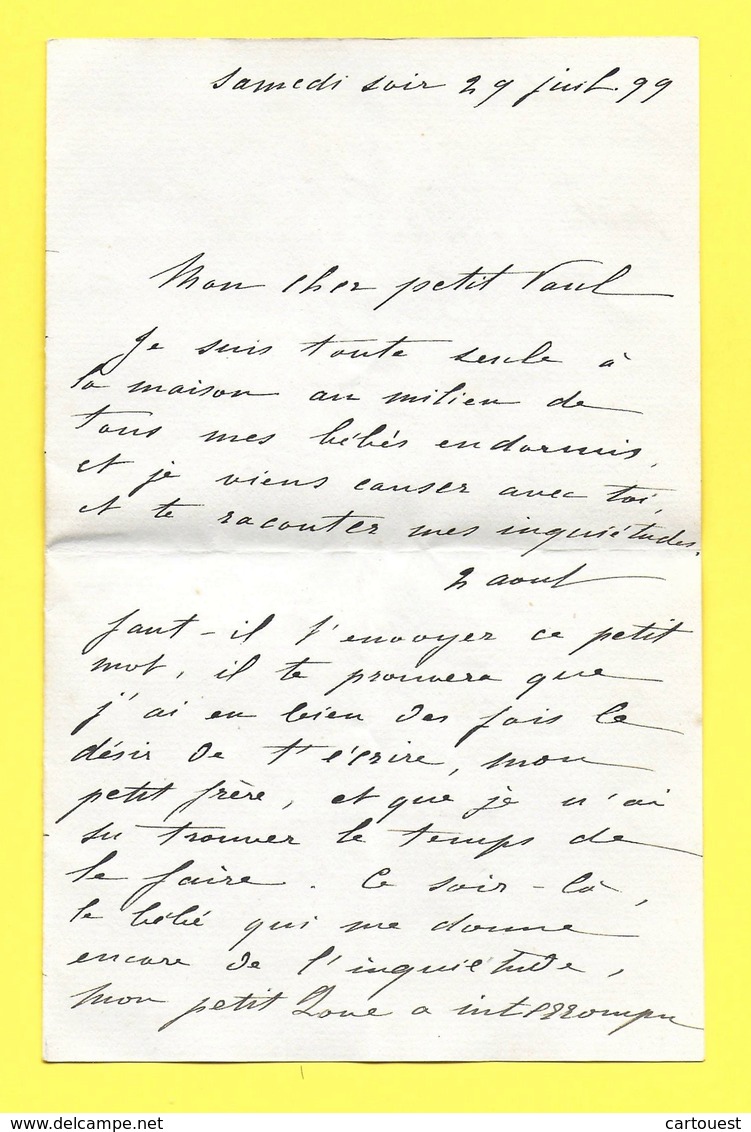 Samedi soir 29 juil. 99
Mon cher petit Paul
Je suis toute seule à
la maison au milieu de
tous mes bébés endormis,
et je viens causer avec toi,
et te raconter mes inquiétudes.
2 aout
faut-il t'envoyer ce petit
mot, il te prouvera que
j'ai eu bien des fois le
désir de t'écrire, mon
petit frère, et que je n'ai
su trouver le temps de
le faire. Ce soir-là,
le bébé qui me donne
encore de l'inquiétude,
mon petit a interrompu
cartouest